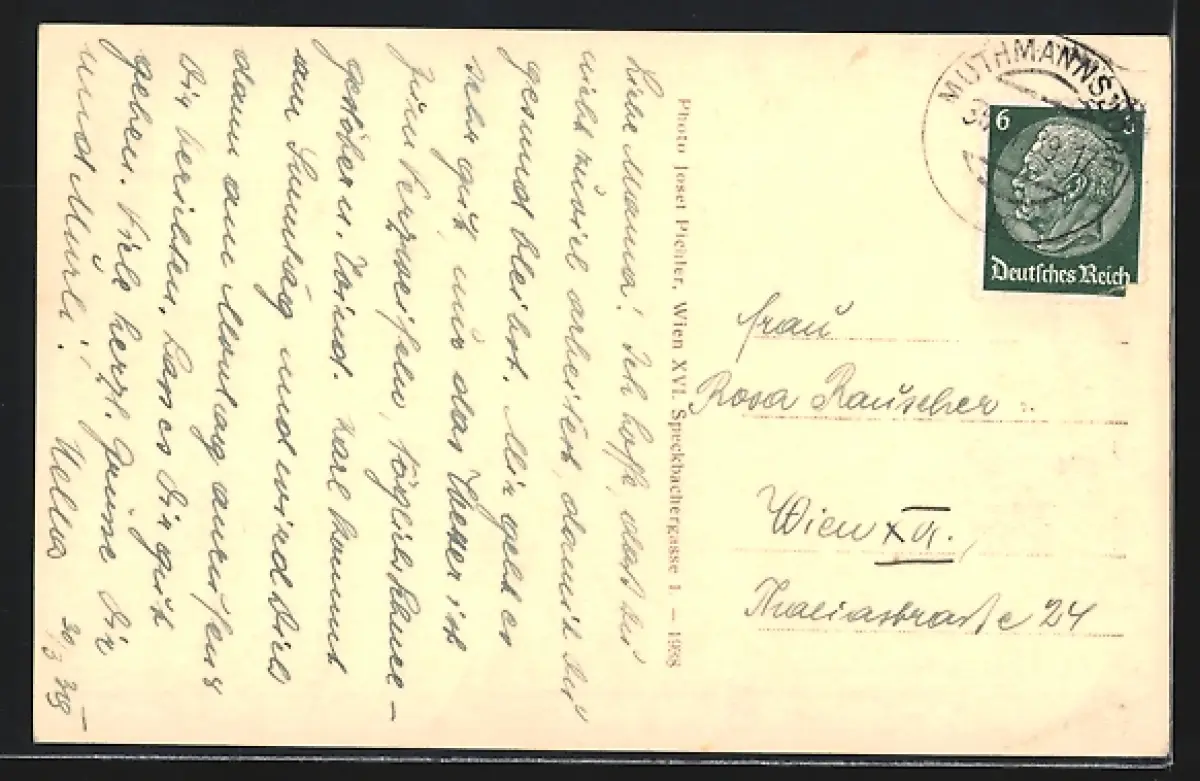 Liebe Mama! Ich hoffe, daß Du
nicht zuviel arbeitest, damit Du
gesund bleibst. Mir geht es
sehr gut, nur das Wetter ist
zum Verzweifeln, täglich Schnee-
gestöber u. Wind. Karl kommt
am Sonntag und wird Dich
dann am Montag
Dir berichten. Lass es Dir gut
gehen. Viele herzl. Grüsse Dir
und Murli!
20/3 39
Photo Josef Pichler, Wien XVI. Speckbachergasse 1. — 1938
MUTHMANNSDORF
6
Deutsches Reich
Frau
Rosa Rauscher
Wien XVI.
Thaliastraße 24